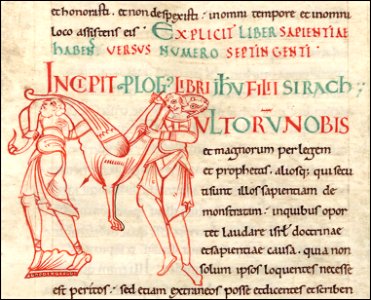 et honorasti. et non despexisti. in omni tempore et in omni
loco assistens eis. EXPLICIT LIBER SAPIENTIAE
habens VERSUS NUMERO SEPTINGENTI.
INCIPIT PLOG LIBRI IHU FILII SIRACH;
ULTORUM NOBIS
et magnorum per legem
et prophetas. aliosq; qui secu
ti sunt illos sapientiam de
monstratam. in quibus opor
tet laudare isrl doctrinae
et sapientiae causa. quia non
solum ipsos loquentes necesse
est peritos; sed etiam extraneos posse et dicentes et scriben